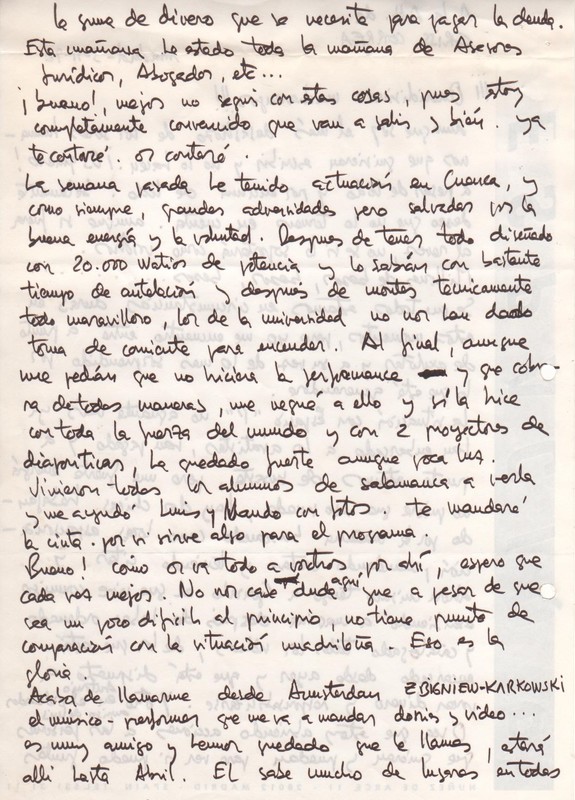 la suma de dinero que se necesita para pagar la deuda.
Esta mañana he estado toda la mañana de Asesores
Jurídicos, Abogados, etc...
¡bueno!, mejor no seguir con estas cosas, pues estoy
completamente convencido que van a salir y bien. ya
te contaré. os contaré.
La semana pasada he tenido actuación en Cuenca, y
como siempre, grandes adversidades pero salvadas por la
buena energía y la voluntad. Despues de tener todo diseñado
con 20.000 Watios de potencia y lo sabían con bastante
tiempo de antelación y después de montar tecnicamente
todo maravilloso, los de la universidad no nos han dado
toma de corriente para encender. Al final, aunque
me pedían que no hiciera la performance y que cobra-
ra de todas maneras, me negué a ello y sí la hice
con toda la fuerza del mundo y con 2 proyectores de
diapositivas, ha quedado fuerte aunque poca luz.
Vinieron todos los alumnos de salamanca a verla
y me ayudó Luis y Mando con fotos. te mandaré
la cinta. por si sirve algo para el programa.
Bueno! cómo os va todo a vosotros por ahí, espero que
cada vez mejor. No nos cabe duda aquí que a pesar de que
sea un poco dificil al principio no tiene punto de
comparación con la situación madrileña. Eso es la
gloria.
Acaba de llamarme desde Amsterdam ZBIGNIEW-KARKOWSKI
el músico-performer que me va a mandar y video...
es muy amigo y hemos quedado que te llames, estará
allí hasta Abril. El sabe mucho de lugares en todos